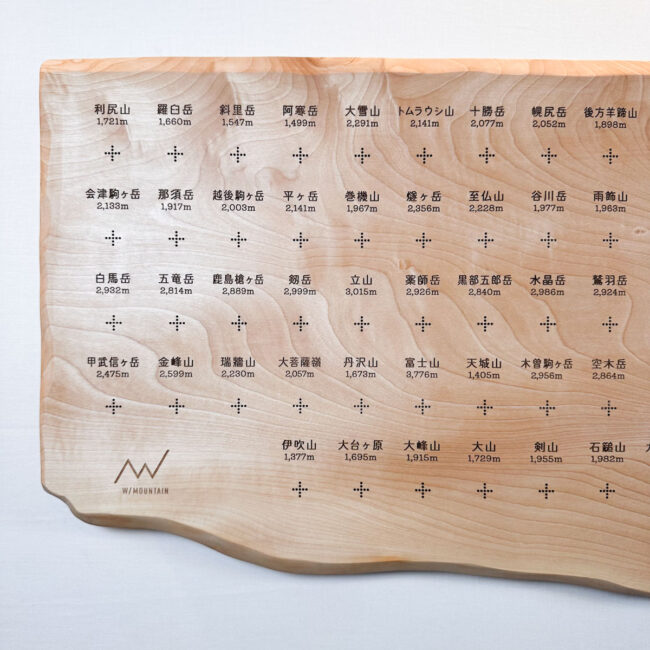 利尻山 羅臼岳 斜里岳 阿寒岳 大雪山 トムラウシ山 十勝岳 幌尻岳 後方羊蹄山
1,721m 1,660m 1,547m 1,499m 2,291m 2,141m 2,077m 2,052m 1,898m
会津駒ヶ岳 那須岳 越後駒ヶ岳 平ヶ岳 巻機山 燧ヶ岳 至仏山 谷川岳 雨飾山
2,133m 1,917m 2,003m 2,141m 1,967m 2,356m 2,228m 1,977m 1,963m
白馬岳 五竜岳 鹿島槍ヶ岳 剱岳 立山 薬師岳 黒部五郎岳 水晶岳 鷲羽岳
2,932m 2,814m 2,889m 2,999m 3,015m 2,926m 2,840m 2,986m 2,924m
甲武信ヶ岳 金峰山 瑞牆山 大菩薩嶺 丹沢山 富士山 天城山 木曽駒ヶ岳 空木岳
2,475m 2,599m 2,230m 2,057m 1,673m 3,776m 1,405m 2,956m 2,864m
伊吹山 大台ヶ原 大峰山 大山 剣山 石鎚山
1,377m 1,695m 1,915m 1,729m 1,955m 1,982m
W/MOUNTAIN